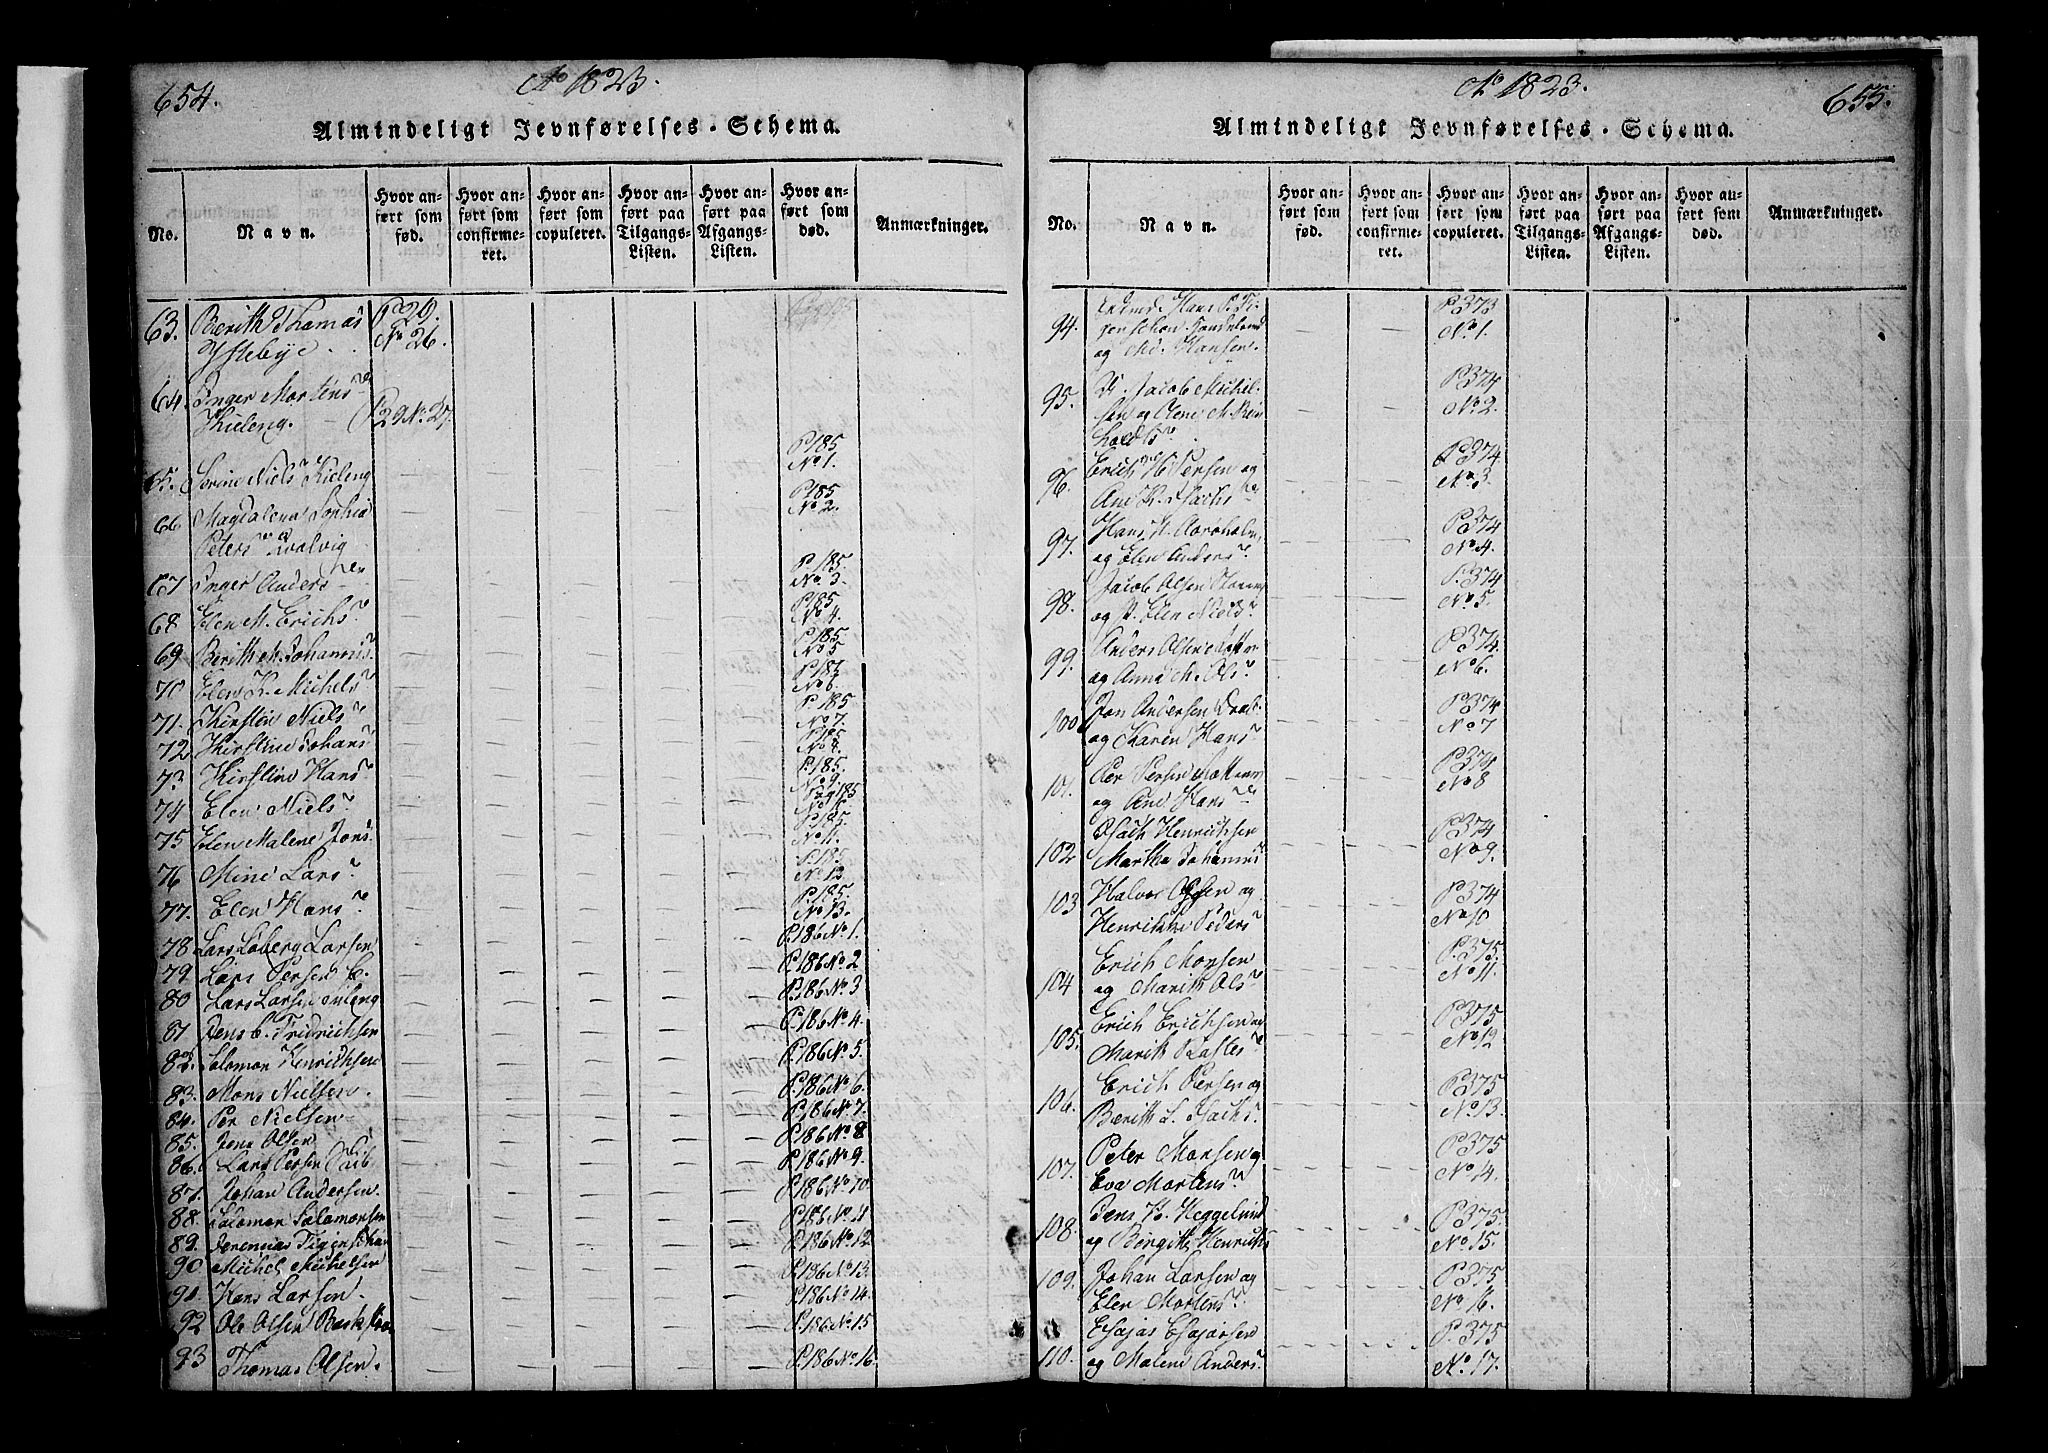 654.
Ao 1823.
Almindeligt Jevnførelses-Schema.
No.
Navn.
Hvor an-
ført som
fød.
Hvor an-
ført som
confirme-
ret.
Hvor an-
ført som
copuleret.
Hvor an-
ført paa
Tilgangs-
Listen.
Hvor an-
ført paa
Afgangs-
Listen.
Hvor an-
ført som
død.
Anmærkninger.
63. Berith Thomas P. 29.
No 26.
64. Inger Mortens
29 No. 27.
P. 185
No 1.
65. Sorine Niels Kieleng
P. 185
No 2.
66 Magdalena Sophia
Peters
P. 185.
67 Inger Anders No. 3
P. 185
68 Elen M. Erichs No 4.
P. 185.
69 Berith M. Johannis No 5
P. 185
70 Elen K. Michels No 6.
P. 185
71. Kirstin Niels No 7.
P. 185
72 Kirstine Johans No 8.
P. 185.
73 Kirstine Hans No 9.
Pag 185
74 Elen Niels No 10
P. 185.
75 Elen Malene Jons No 11.
P. 185
76 Mine Lars No 12
P. 185.
77. Elen Hans No 13.
78 Lars Loberg Larsen P. 186 No 1.
79. Lars Persen P. 186 No 2
80 Lars Larsen P. 186 No 3
81 Jens C. Fridrichsen P. 186 No. 4.
82. Salomon Henrichsen P. 186 No. 5.
83. Mons Nielsen P. 186 No. 6.
84. Per Nielsen P. 186 No. 7.
85. Jens Olsen P. 186 No. 8
86. Lars Persen P. 186 No. 9.
87. Johan Andersen P. 186 No. 10.
88. Salomon Salomonsen P. 186 No. 11
89. Jeremias P. 186 No. 12.
90 Michel Michelsen P. 186 No. 13.
91. Hans Larsen P. 186 No. 14.
92 Ole Olsen P. 186 No. 15
93 Thomas Olsen P. 186 No. 16.
Ao 1823.
655.
Almindeligt Jevnførelses-Schema.
No.
Navn.
Hvor an-
ført som
fød.
Hvor an-
ført som
confirme-
ret.
Hvor an-
ført som
copuleret.
Hvor an-
ført paa
Tilgangs-
Listen.
Hvor an-
ført paa
Afgangs-
Listen.
Hvor an-
ført som
død.
Anmærkninger.
Hans P. P. 373
94. No 1.
og Md. Hansen.
Jacob Michel- P. 374
95. sen og No 2.
96. Erich Persen og P. 374
No 3
97. Hans P. 374
og Elen Anders No 4.
98. Jacob Olsen P. 374
og Elen Niels No 5.
99. Anders Olsen P. 374.
og Anna M. Ols No 6.
100 Jon Andersen P. 374
og Karen Hans No 7
101. Per Persen P. 374
og Ane Hans No 8
102 Isach Henrichsen P. 374
Martha Johannes No 9.
103 Halvor Olsen og P. 374
Henrikke Peders No 10
104 Erich Monsen P. 375.
og Marith Ols No 11.
105. Erich Erichsen P. 375
Marith No 12
106. Erich Persen og P. 375
Berith L. Isachs No 13.
107. Peter Monsen og P. 375
Eva Mortens No 14.
108. Jens H. Heggelund P. 375.
og Birgitte Henrichs No 15.
109. Johan Larsen og P. 375
Elen Mortens No 16.
110. Esajas Esajasen P. 375
og Malene Anders No. 17.